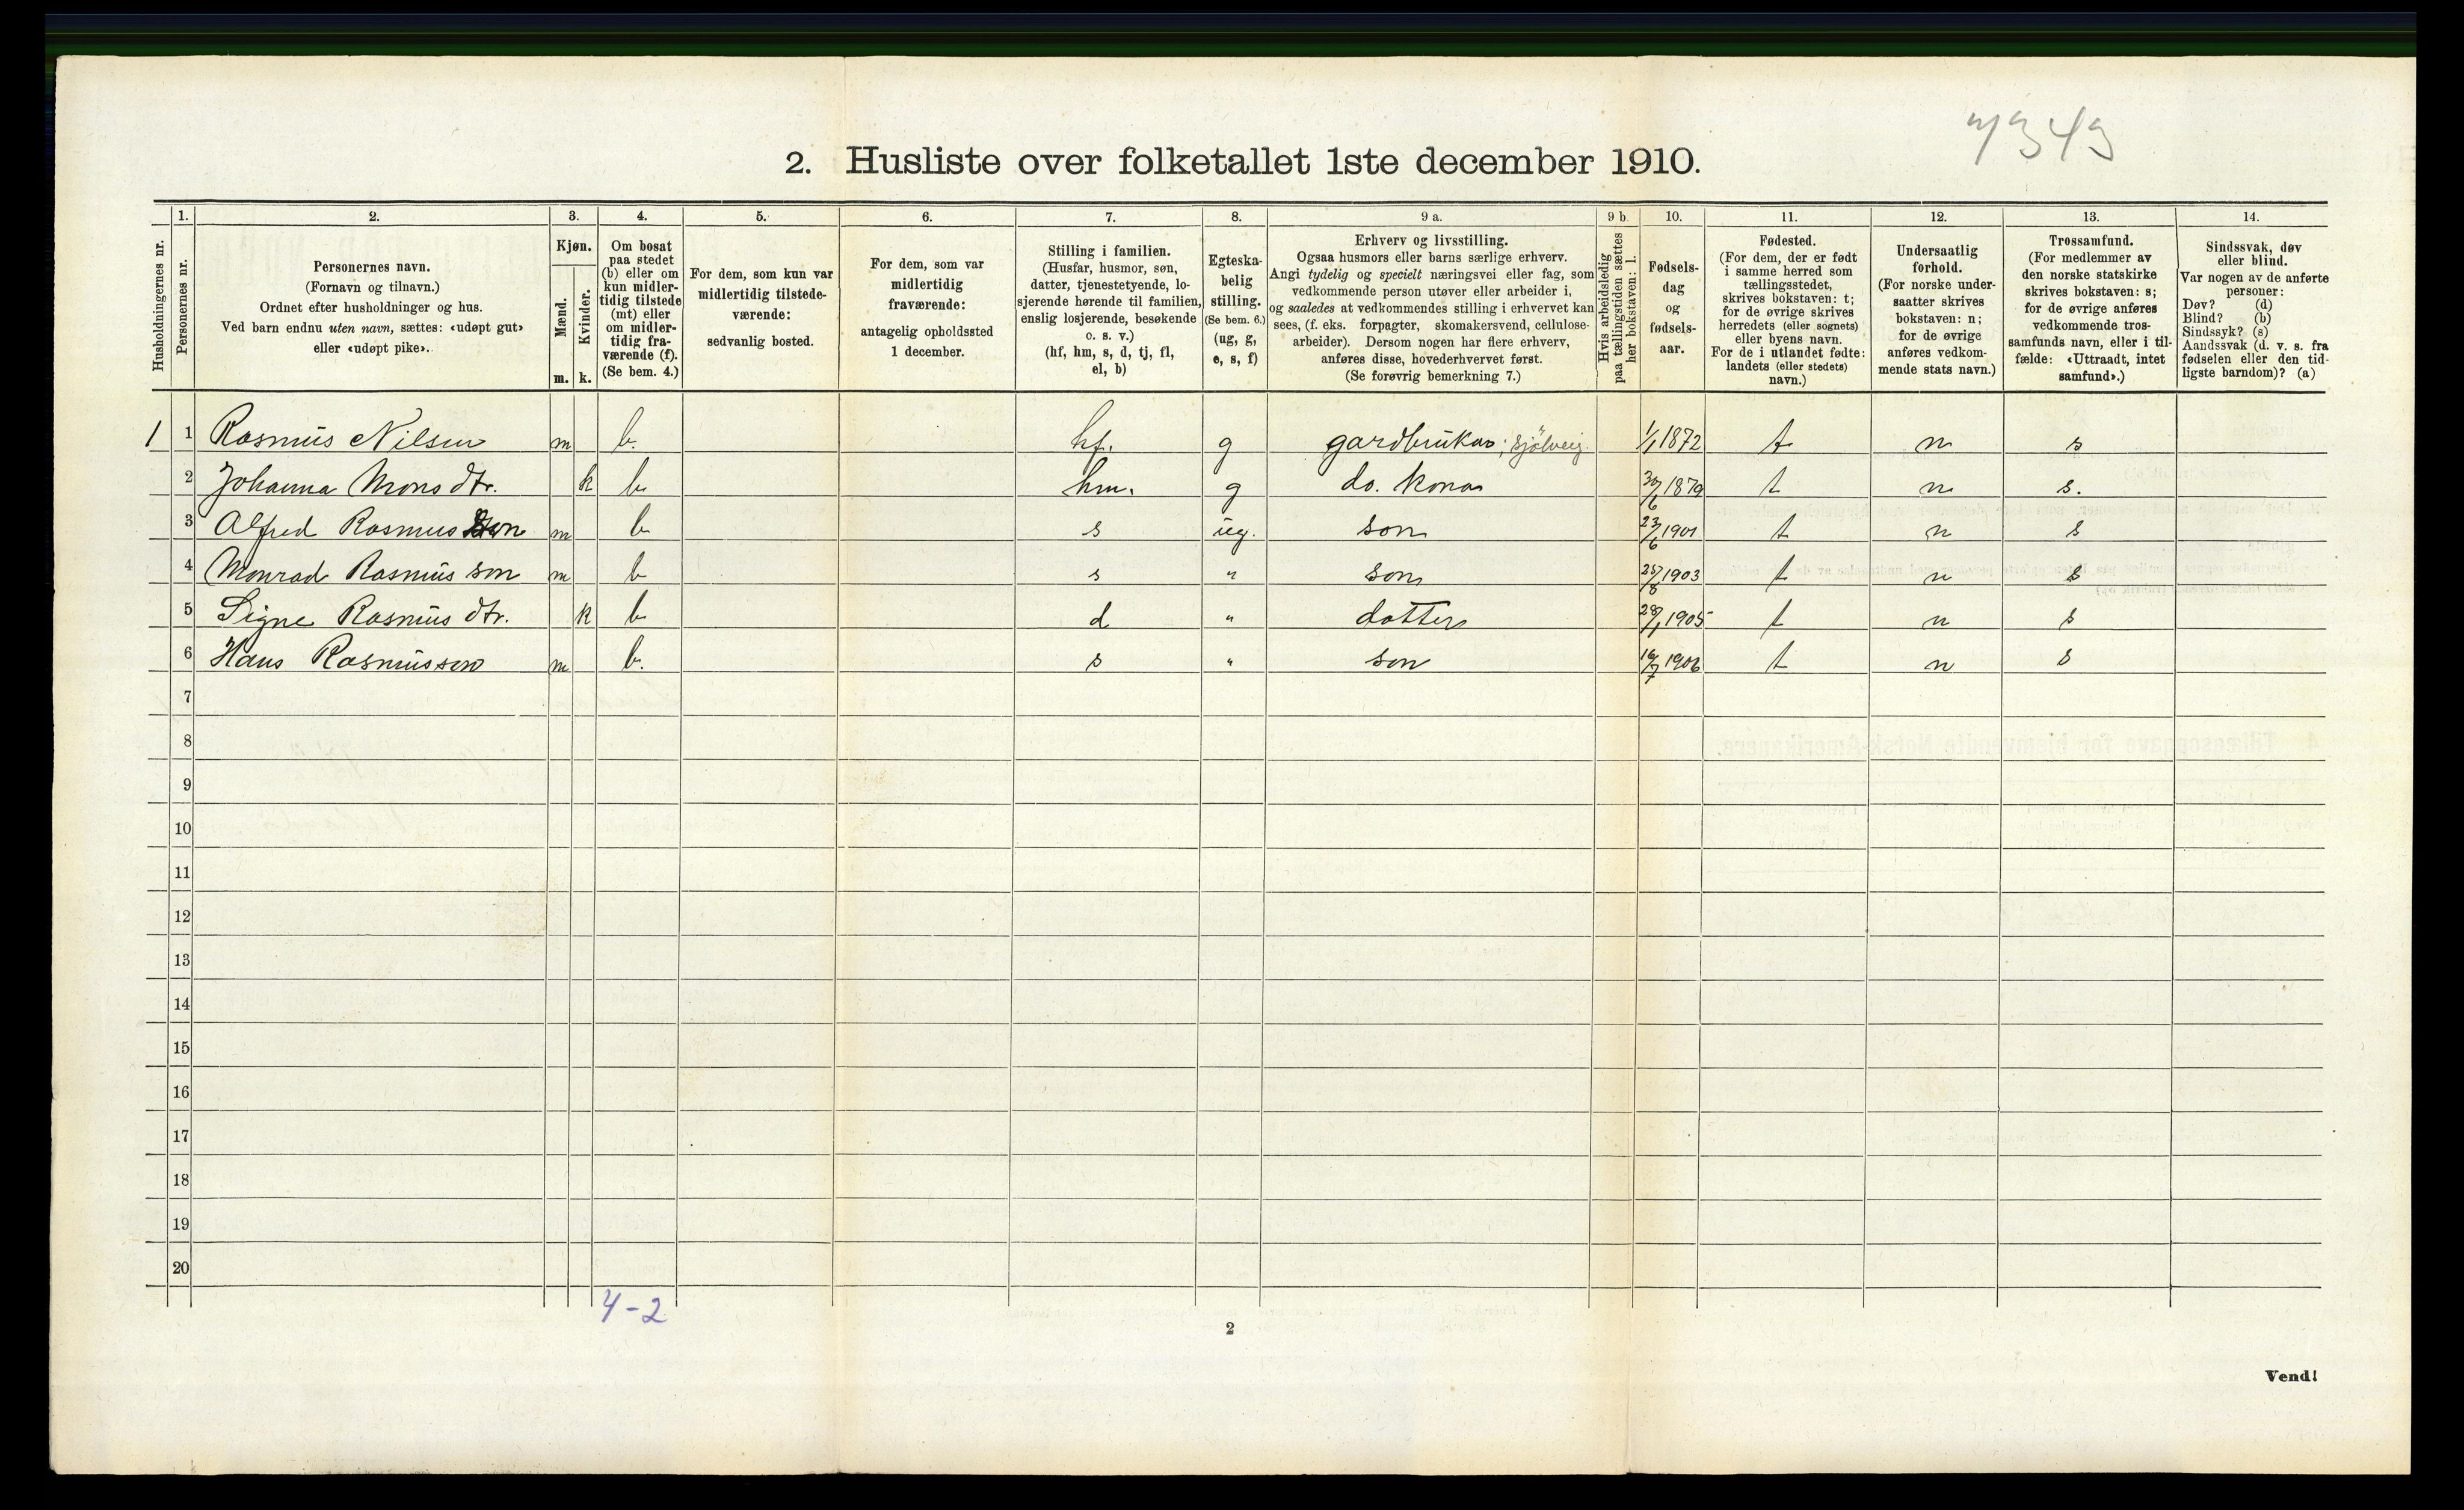 2. Husliste over folketallet 1ste december 1910.
Husholdningernes nr.
1.
Personernes nr.
2.
Personernes navn.
(Fornavn og tilnavn.)
Ordnet efter husholdninger og hus.
Ved barn endnu uten navn, sættes: «udøpt gut»
eller «udøpt pike».
3.
Kjøn.
Mænd.
m.
Kvinder.
k.
4.
Om bosat
paa stedet
(b) eller om
kun midler-
tidig tilstede
(mt) eller
om midler-
tidig fra-
værende (f).
(Se bem. 4.)
5.
For dem, som kun var
midlertidig tilstede-
værende:
sedvanlig bosted.
6.
For dem, som var
midlertidig
fraværende:
antagelig opholdssted
1 december.
7.
Stilling i familien.
(Husfar, husmor, søn,
datter, tjenestetyende, lo-
sjerende hørende til familien,
enslig losjerende, besøkende
o. s. v.)
(hf, hm, s, d, tj, fl,
el, b)
8.
Egteska-
belig
stilling.
(Se bem. 6.)
(ug, g,
e, s, f)
9 a.
Erhverv og livsstilling.
Ogsaa husmors eller barns særlige erhverv.
Angi tydelig og specielt næringsvei eller fag, som
vedkommende person utøver eller arbeider i,
og saaledes at vedkommendes stilling i erhvervet kan
sees, (f. eks. forpagter, skomakersvend, cellulose-
arbeider). Dersom nogen har flere erhverv,
anføres disse, hovederhvervet først.
(Se forøvrig bemerkning 7.)
9 b.
Hvis arbeidsledig
paa tællingstiden sættes
her bokstaven: l.
10.
Fødsels-
dag
og
fødsels-
aar.
11.
Fødested.
(For dem, der er født
i samme herred som
tællingsstedet,
skrives bokstaven: t;
for de øvrige skrives
herredets (eller sognets)
eller byens navn.
For de i utlandet fødte:
landets (eller stedets)
navn.)
12.
Undersaatlig
forhold.
(For norske under-
saatter skrives
bokstaven: n;
for de øvrige
anføres vedkom-
mende stats navn.)
13.
Trossamfund.
(For medlemmer av
den norske statskirke
skrives bokstaven: s;
for de øvrige anføres
vedkommende tros-
samfunds navn, eller i til-
fælde: «Uttraadt, intet
samfund».)
14.
Sindssvak, døv
eller blind.
Var nogen av de anførte
personer:
Døv? (d)
Blind? (b)
Sindssyk? (s)
Aandssvak (d. v. s. fra
fødselen eller den tid-
ligste barndom)? (a)
1 1 Rasmus Nilsen m b. hf. g gardbrukar; sjölveig. 1/1 1872 t n s
2 Johanna Mons dtr. k b hm. g do. kona 30/6 1879 t n s.
3 Alfred Rasmusson m b s ug. son 23/6 1901 t n s
4 Monrad Rasmus son m b s " son 25/8 1903 t n s
5 Signe Rasmus dtr. k b d " dotter 28/1 1905 t n s
6 Hans Rasmusson m b. s " son 16/7 1906 t n s
7
8
9
10
11
12
13
14
15
16
17
18
19
20
4-2
2
Vend!